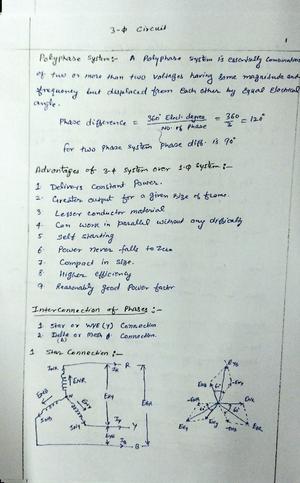 3-ϕ Circuit
1
Polyphase System:- A Polyphase system is essentially Combination
of two or more than two voltages having same magnitude and
frequency but displaced from each other by Equal Electrical
angle.
Phase difference = 360° Elect. degree / No. of Phase = 360/3 = 120°
for two phase system phase diff. is 90°
Advantages of 3-ϕ System over 1-ϕ System:-
1. Delivers Constant Power.
2. Greater output for a given size of frame.
3. Lesser conductor material
4. Can work in parallel without any difficulty
5. Self starting
6. Power never falls to Zero
7. Compact in size.
8. Higher efficiency
9. Reasonably good Power factor
Interconnection of Phases:-
1. Star or WYE (Y) Connection
2. Delta or Mesh Connection.
(Δ)
1 Star Connection:-
R
Y
B